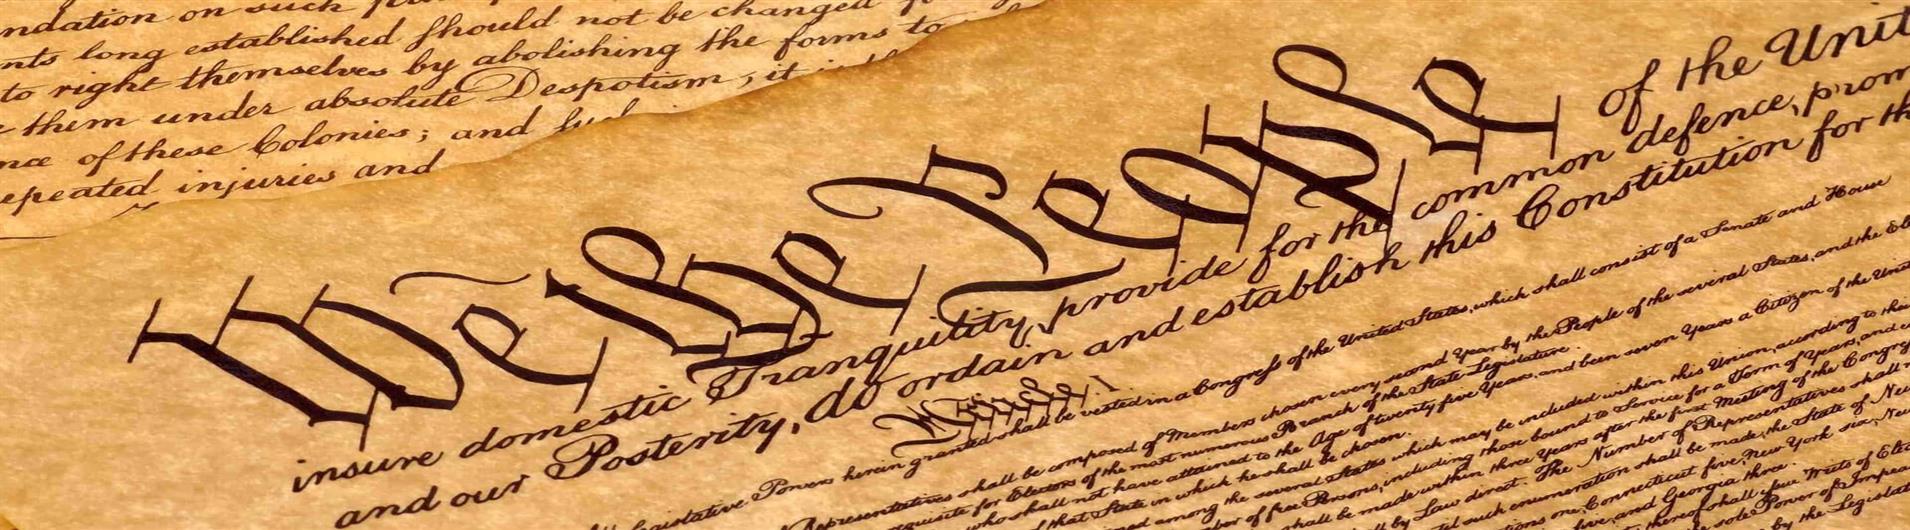 ndation on such
nts long established should not be changed
to right themselves by abolishing the forms to
them under absolute Despotism, it is
nce of these Colonies; and such
epeated injuries and
We the People of the Unit
insure domestic Tranquility, provide for the common defence, prom
and our Posterity, do ordain and establish this Constitution for th
Article I.
gislative Powers herein granted shall be vested in a Congress of the United States, which shall consist of a Senate and House
Representatives shall be composed of Members chosen every second Year by the People of the several States, and the Ele
equisite for Electors of the most numerous Branch of the State Legislature.
who shall not have attained to the Age of twenty five Years, and been seven Years a Citizen of the Unit
of that State in which he shall be chosen.
ned among the several States which may be included within this Union, according to thei
ber of free Persons, including those bound to Service for a Term of Years, and e
shall be made within three Years after the first Meeting of the Congre
ll by Law direct. The Number of Representatives shall n
til such enumeration shall be made, the State of New
tions one, Connecticut five, New York six, New
five, and Georgia three.
thereof shall issue Writs of Elec
sole Power of Impea
by the Legislat